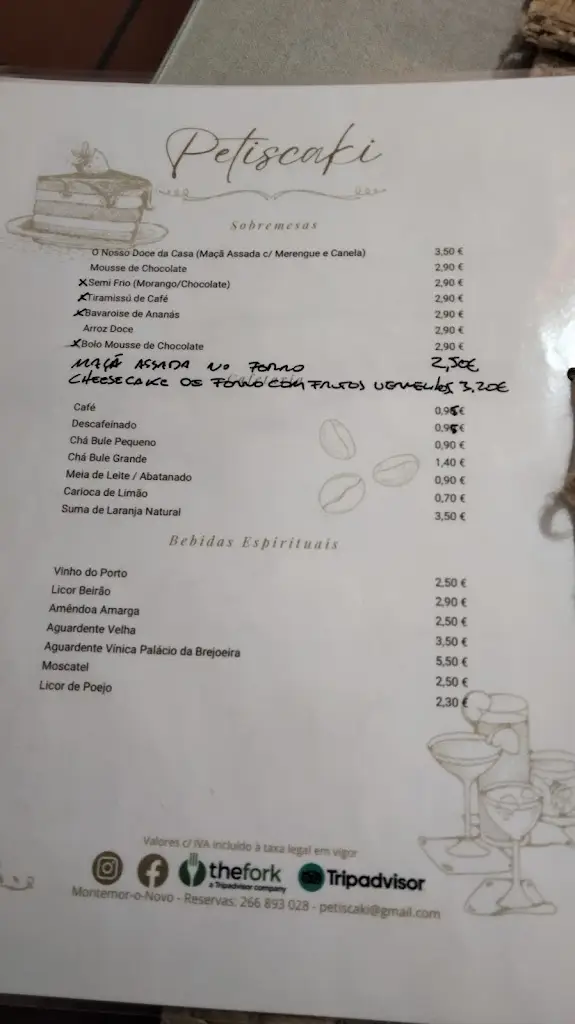 Petiscaki
Sobremesas
O Nosso Doce da Casa (Maçã Assada c/ Merengue e Canela) 3,50 €
Mousse de Chocolate 2,90 €
xSemi Frio (Morango/Chocolate) 2,90 €
xTiramissú de Café 2,90 €
xBavaroise de Ananás 2,90 €
Arroz Doce 2,90 €
xBolo Mousse de Chocolate 2,90 €
MAÇÃ ASSADA NO FORNO 2,50€
CHEESECAKE DE FORNO COM FRUTOS VERMELHOS 3,20€
Café 0,95€
Descafeínado 0,95€
Chá Bule Pequeno 0,90 €
Chá Bule Grande 1,40 €
Meia de Leite / Abatanado 0,90 €
Carioca de Limão 0,70 €
Suma de Laranja Natural 3,50 €
Bebidas Espirituais
Vinho do Porto 2,50 €
Licor Beirão 2,90 €
Amêndoa Amarga 2,50 €
Aguardente Velha 3,50 €
Aguardente Vínica Palácio da Brejoeira 5,50 €
Moscatel 2,50 €
Licor de Poejo 2,30 €
Valores c/ IVA incluído à taxa legal em vigor
thefork Tripadvisor
a Tripadvisor company
Montemor-o-Novo - Reservas: 266 893 028 - petiscaki@gmail.com